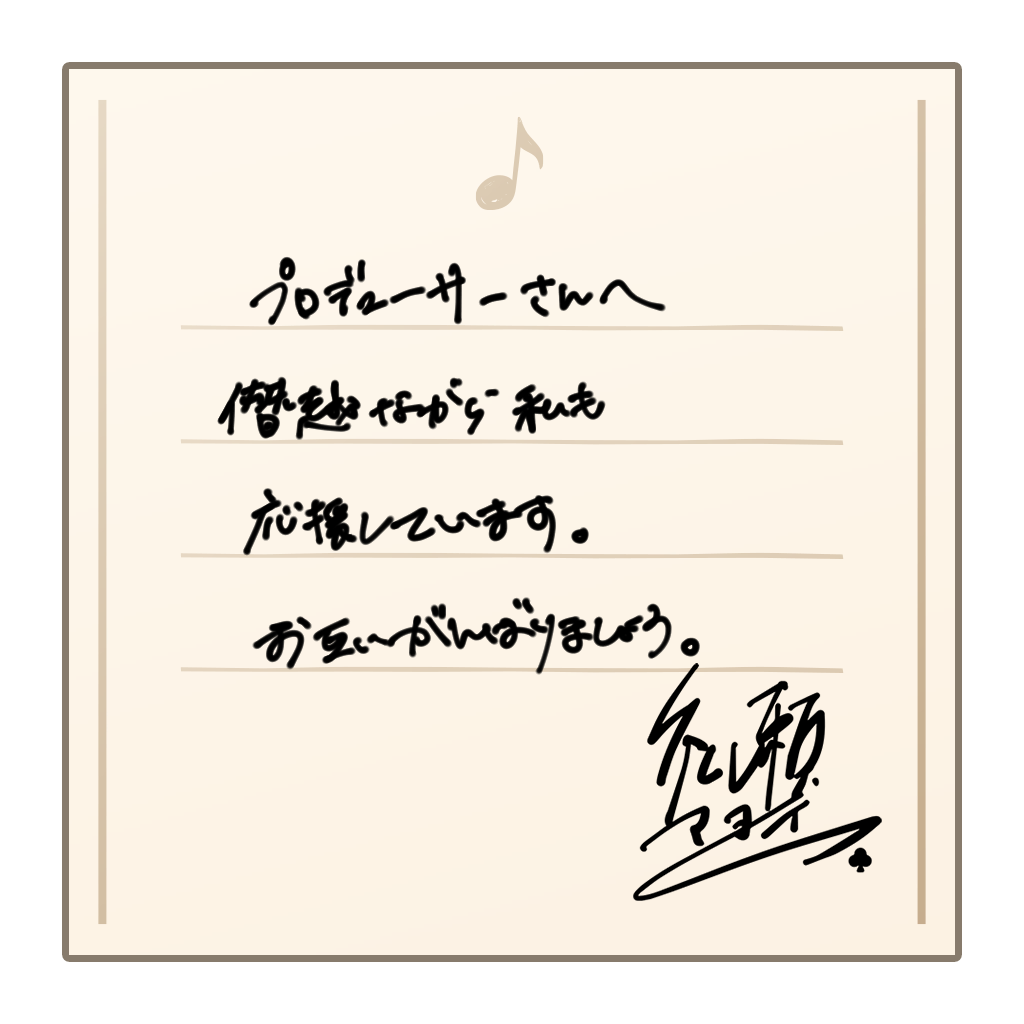 プロデューサーさんへ
僭越ながら私も
応援しています。
お互いがんばりましょう。
礼瀬
マヨイ